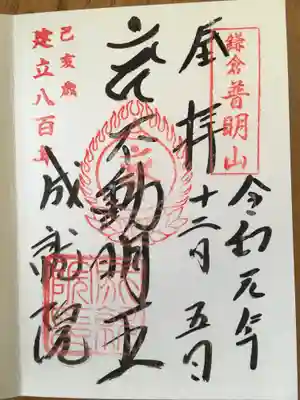 鎌倉
普明山
令和元年
奉拝
十二月五日
不動明王
己亥歳
建立八百年
成就院